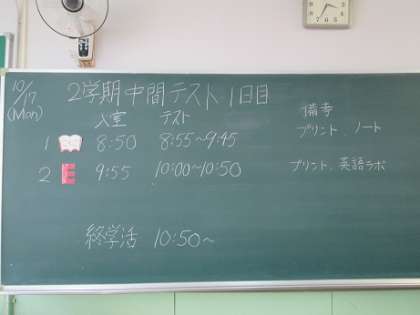 10/17
(Mon)
2学期中間テスト1日目
入室 テスト 備考
1 8:50 8:55~9:45 プリント、ノート
2 E 9:55 10:00~10:50 プリント、英語ラボ
終学活 10:50~